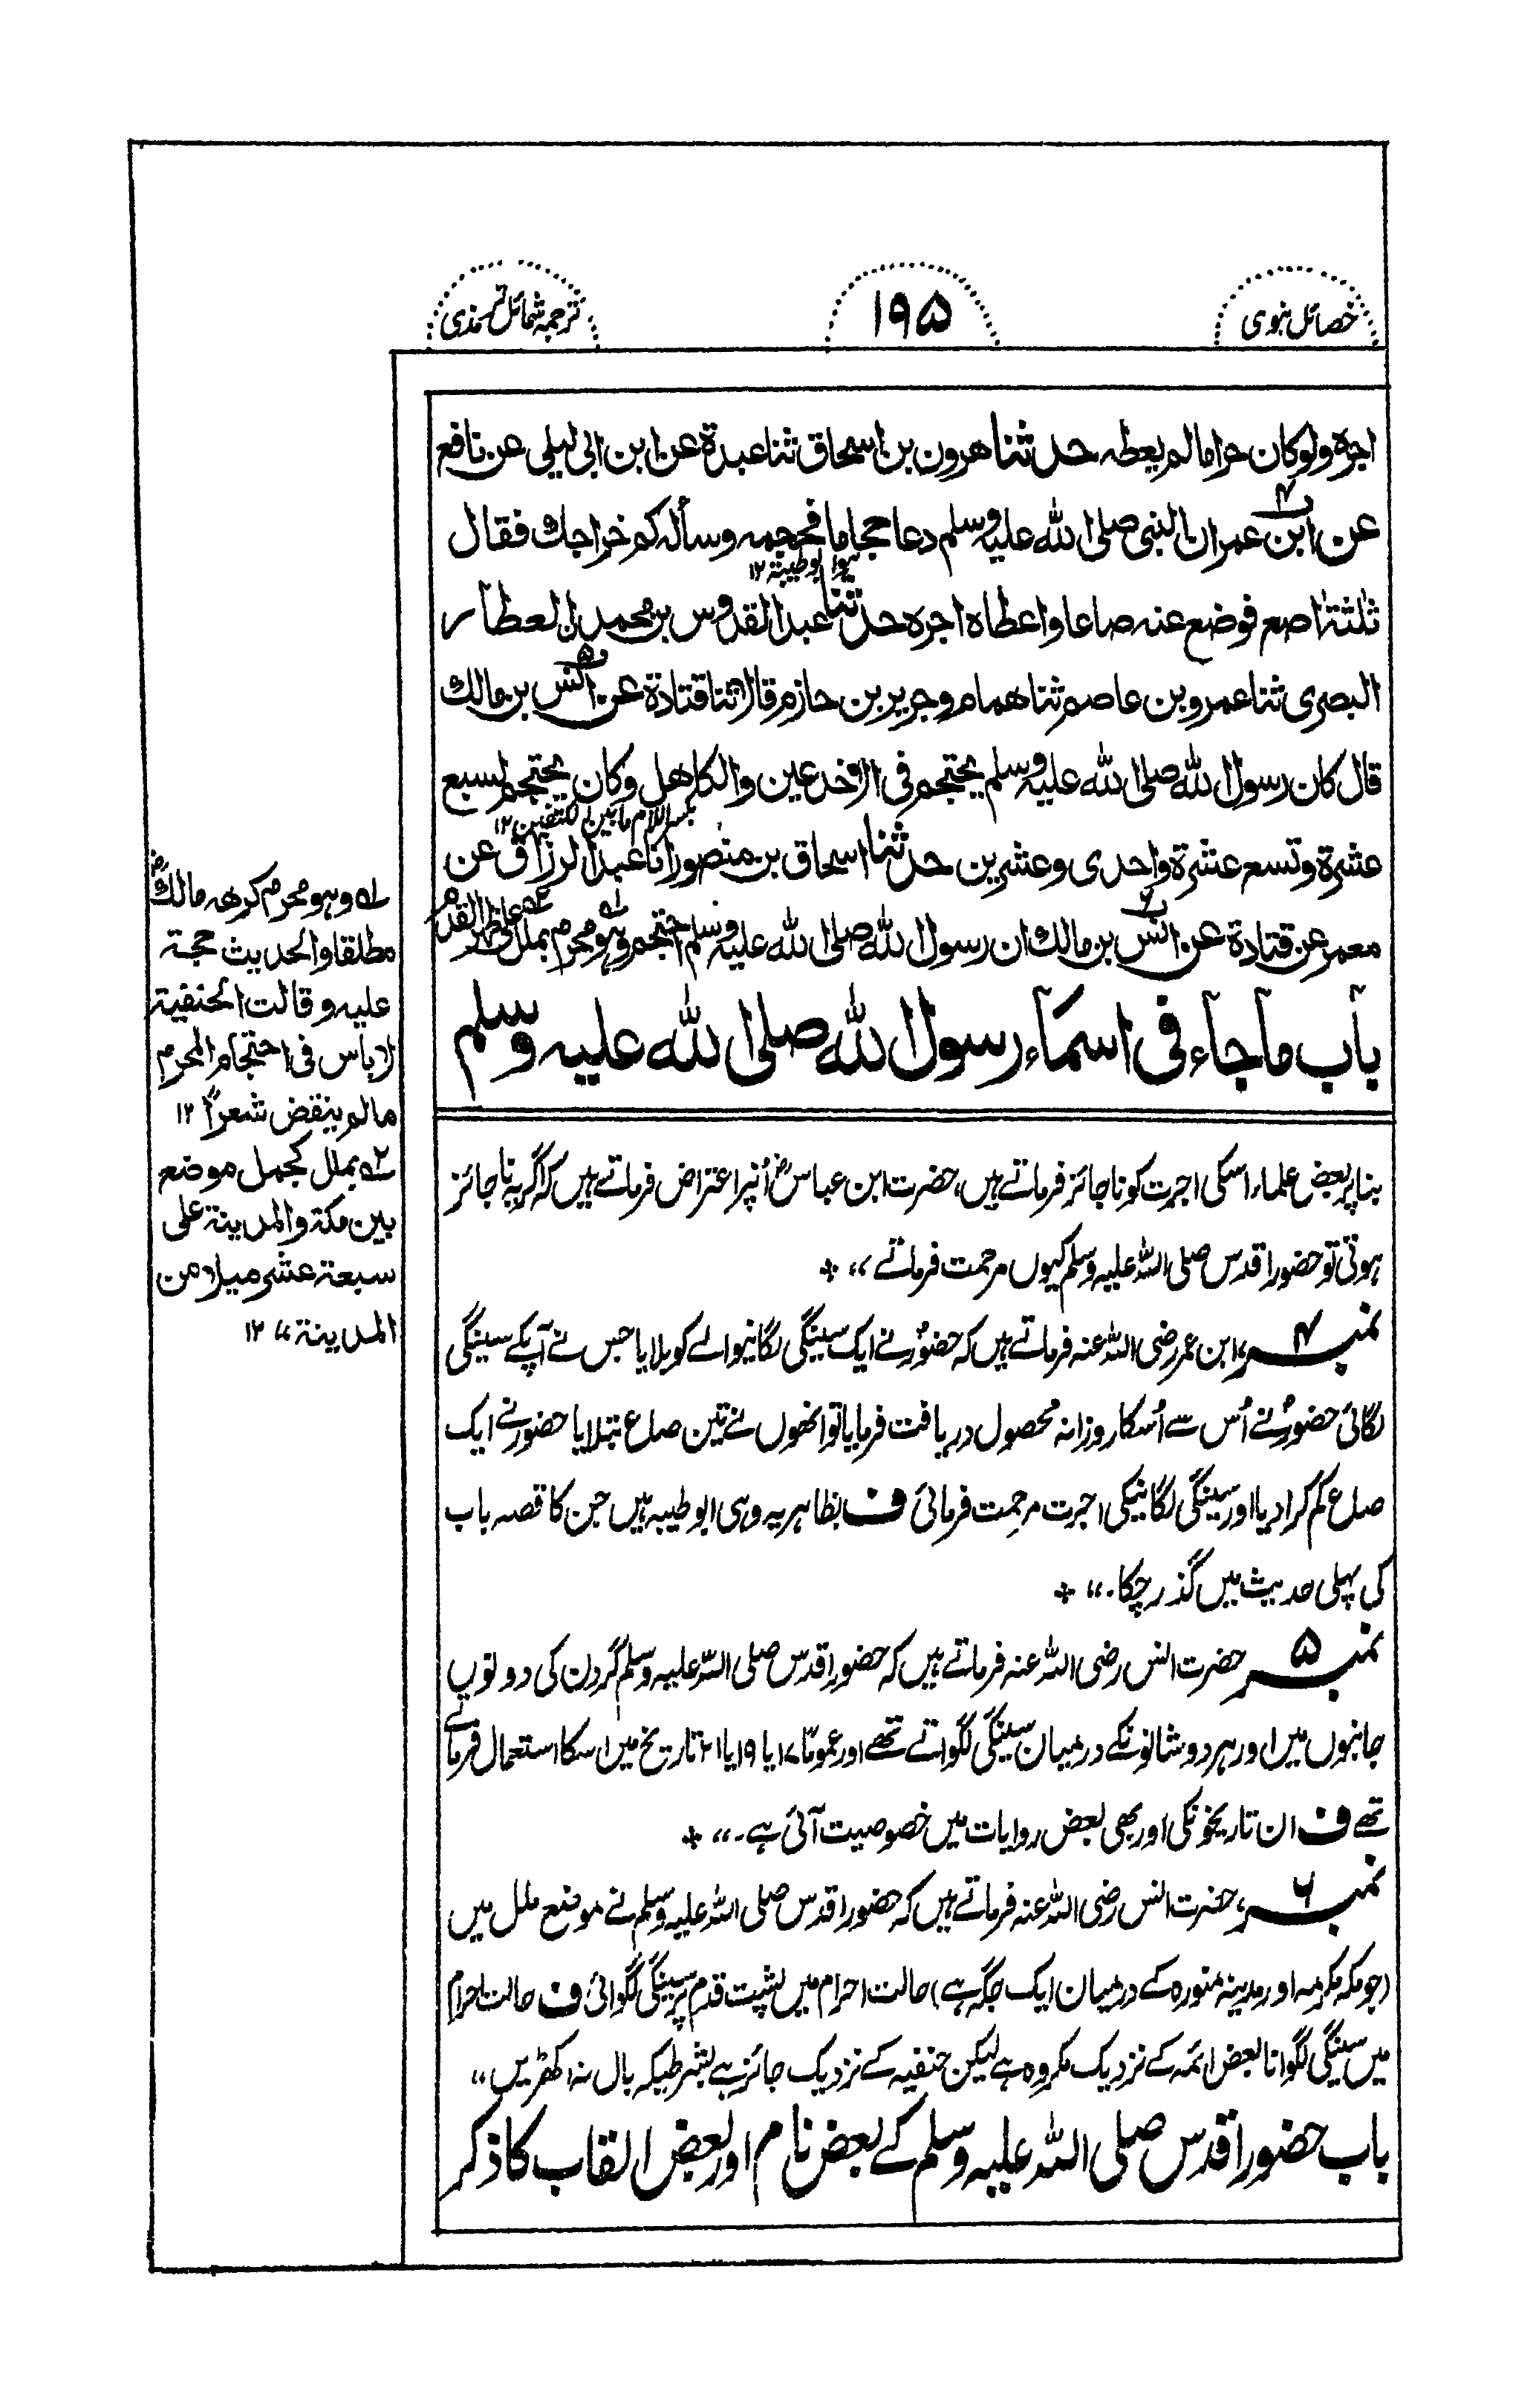 خصائل نبوی
۱۹۵
ترجمہ شمائل ترمذی
اجره ولوكان حراما لم يعطه حدثنا هرون بن اسحاق ثنا عبدة عن ابن ابى ليلى عن نافع
۴
عن ابن عمر ان النبى صلى الله عليه وسلم دعا حجاما فحجمه وسأله كم خراجك فقال
هو ابو طيبة ۱۲
ثلثة اصع فوضع عنه صاعا واعطاه اجره حدثنا عبد القدوس بن محمد العطار
۵
البصرى ثنا عمرو بن عاصم ثنا همام وجرير بن حازم قالا ثنا قتادة عن انس بن مالك
قال كان رسول الله صلى الله عليه وسلم يحتجم فى الاخدعين والكاهل وكان يحتجم لسبع
بكسر اللام ما بين الكتفين ۱۲
عشرة وتسع عشرة واحدى وعشرين حدثنا اسحاق بن منصور انا عبد الرزاق عن
۶
معمر عن قتادة عن انس بن مالك ان رسول الله صلى الله عليه وسلم احتجم وهو محرم بملل على ظهر القدم
باب ما جاء فى اسماء رسول الله صلى الله عليه وسلم
بنا پر بعض علماء اسکی اجرت کو ناجائز فرماتے ہیں، حضرت ابن عباسؓ اُنپر اعتراض فرماتے ہیں کہ اگر یہ ناجائز
ہوتی تو حضور اقدس صلی اللہ علیہ وسلم کیوں مرحمت فرماتے ،،
نمبر ۴، ابن عمر رضی اللہ عنہ فرماتے ہیں کہ حضورؐ نے ایک سینگی لگانیوالے کو بلایا جس نے آپکے سینگی
لگائی حضورؐ نے اُس سے اُسکا روزانہ محصول دریافت فرمایا تو انھوں نے تین صاع بتلایا حضور نے ایک
صاع کم کرا دیا اور سینگی لگانیکی اجرت مرحمت فرمائی ف بظاہر یہ وہی ابو طیبہ ہیں جن کا قصہ باب
کی پہلی حدیث میں گذر چکا۔،،
نمبر ۵ حضرت انس رضی اللہ عنہ فرماتے ہیں کہ حضور اقدس صلی اللہ علیہ وسلم گردن کی دونوں
جانبوں میں اور ہر دو شانونکے درمیان سینگی لگواتے تھے اور عموماً ۱۷ یا ۱۹ یا ۲۱ تاریخ میں اسکا استعمال فرماتے
تھے ف ان تاریخونکی اور بھی بعض روایات میں خصوصیت آئی ہے۔،،
نمبر ۶، حضرت انس رضی اللہ عنہ فرماتے ہیں کہ حضور اقدس صلی اللہ علیہ وسلم نے موضع ملل میں
(جو مکہ مکرمہ اور مدینہ منورہ کے درمیان ایک جگہ ہے) حالت احرام میں پشت قدم پر سینگی لگوائی ف حالت احرام
میں سینگی لگوانا بعض ائمہ کے نزدیک مکروہ ہے لیکن حنفیہ کے نزدیک جائز ہے بشرطیکہ بال نہ اکھڑیں ،،
باب حضور اقدس صلی اللہ علیہ وسلم کے بعض نام اور بعض القاب کا ذکر
۱ه وهو محرم كرهه مالكؒ
مطلقا والحديث حجة
عليه وقالت الحنفية
لا باس فى احتجام المحرم
مالم ينقض شعراً ۱۲
۲ه بملل كجمل موضع
بين مكة والمدينة على
سبعة عشر ميلا من
المدينة ،، ۱۲